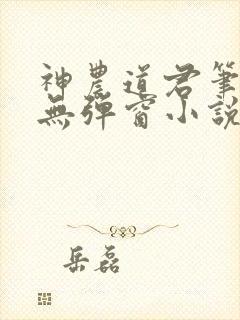 神農道君筆
無彈窗小説
岳磊